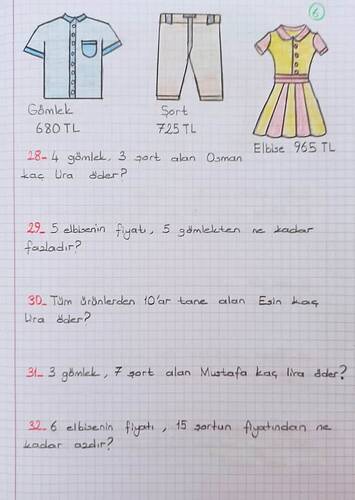 6
Gömlek
680 TL
Şort
725 TL
Elbise 965 TL
28- 4 gömlek, 3 şort alan Osman
kaç lira öder?
29- 5 elbisenin fiyatı, 5 gömlekten ne kadar
fazladır?
30- Tüm ürünlerden 10'ar tane alan Esin kaç
lira öder?
31- 3 gömlek, 7 şort alan Mustafa kaç lira öder?
32- 6 elbisenin fiyatı, 15 şortun fiyatından ne
kadar azdır?